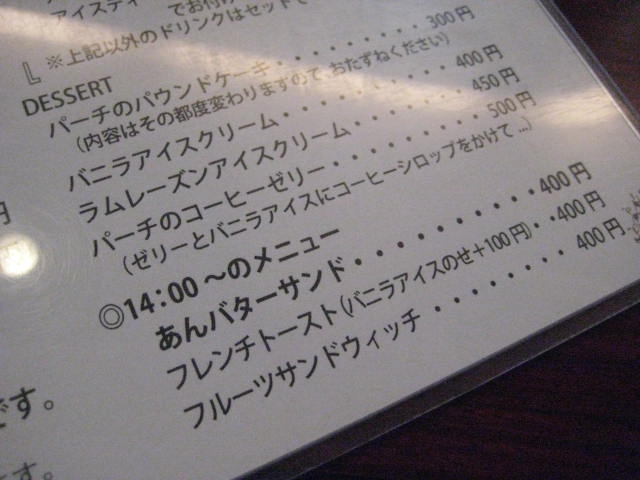 アイスティー
でお付け
※上記以外のドリンクはセットで
DESSERT
パーチのパウンドケーキ・・・・・・・・・300円
（内容はその都度変わりますので おたずねください）
バニラアイスクリーム・・・・・・・・・400円
ラムレーズンアイスクリーム・・・・・・・450円
パーチのコーヒーゼリー・・・・・・・・・500円
（ゼリーとバニラアイスにコーヒーシロップをかけて ...）
◎14：00 〜のメニュー
あんバターサンド・・・・・・・・・・400円
フレンチトースト（バニラアイスのせ＋100円）・・400円
フルーツサンドウィッチ ・・・・・・・・400円
円
です。
です。